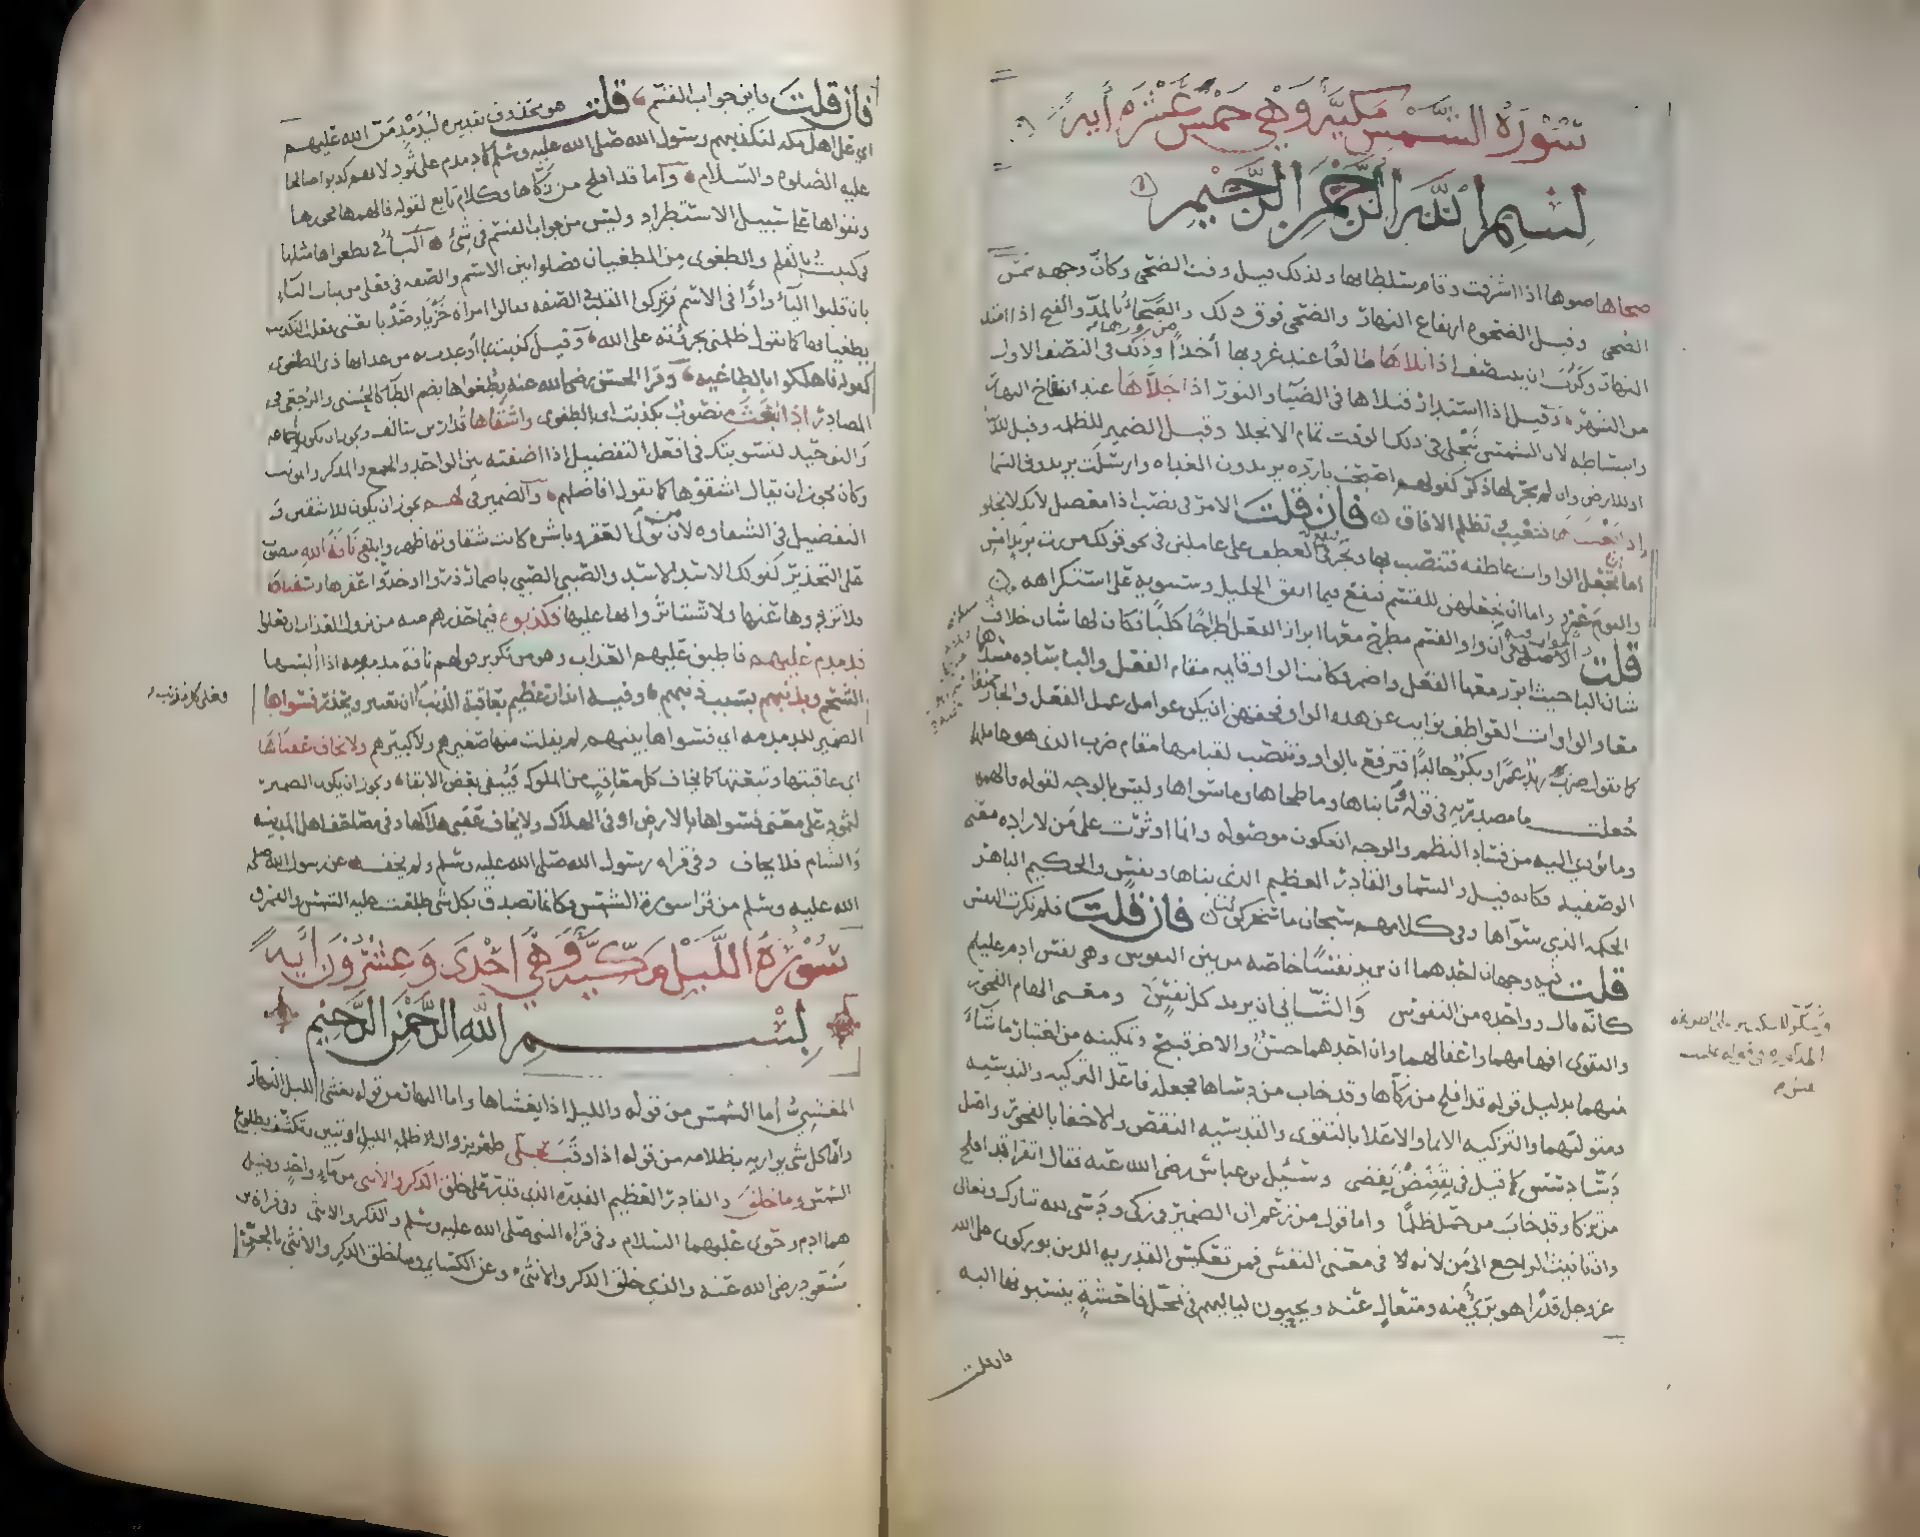 سورة الشمس مكية وهي خمس عشرة آية
بسم الله الرحمن الرحيم
ضحاها ضوءها اذا اشرقت وقام سلطانها ولذلك قيل وقت الضحى وكان وجهه شمس
الضحى وقيل الضحوة ارتفاع النهار والضحى فوق ذلك والضحاء بالمد والفتح اذا امتد
النهار وكرب ان ينتصف اذا تلاها طالعا عند غروبها اخذا من نورها وذلك في النصف الاول
من الشهر وقيل اذا استدار فتلاها في الضياء والنور اذا جلاها عند انتفاخ النهار
وانبساطه لان الشمس تنجلي في ذلك الوقت تمام الانجلاء وقيل الضمير للظلمة وقيل للدنيا
او للارض وان لم يجر لها ذكر كقولهم اصبحت باردة يريدون الغداة وارسلت يريدون السماء
اذا يغشاها فتغيب وتظلم الافاق فان قلت الامر في نصب اذا معضل لانك لا تخلو
اما ان تجعل الواوات عاطفة فتنصب بها وتجر فتقع في العطف على عاملين في نحو قولك مررت امس بزيد
واليوم عمرو واما ان تجعلهن للقسم فتقع فيما اتفق الخليل وسيبويه على استكراهه
قلت الجواب فيه ان واو القسم مطرح معها ابراز الفعل اطراحا كليا فكان لها شان خلاف
شان الباء حيث ابرز معها الفعل واضمر فكانت الواو قائمة مقام الفعل والباء سادة مسدهما معا
والواوات العواطف نوائب عن هذه الواو فحقهن ان يكن عوامل عمل الفعل والجار جميعا
كما تقول ضرب زيد عمرا وبكر خالدا فترفع بالواو وتنصب لقيامها مقام ضرب الذي هو عاملهما
جعلت ما مصدرية في قوله وما بناها وما طحاها وما سواها وليس بالوجه لقوله فالهمها
وما يؤدي اليه من فساد النظم والوجه ان تكون موصولة وانما اوثرت على من لارادة معنى
الوصفية فكانه قيل والسماء والقادر العظيم الذي بناها ونفس والحكيم الباهر
الحكمة الذي سواها وفي كلامهم سبحان ما سخركن لنا فان قلت فلم نكرت النفس
قلت فيه وجهان احدهما ان يريد نفسا خاصة من بين النفوس وهي نفس ادم عليه السلام
كانه قال وواحدة من النفوس والثاني ان يريد كل نفس ومعنى الهام الفجور
والتقوى افهامهما واعقالهما وان احدهما حسن والاخر قبيح وتمكينه من اختيار ما شاء
منهما بدليل قوله قد افلح من زكاها وقد خاب من دساها فجعله فاعل التزكية والتدسية
ومتوليهما والتزكية الانماء والاعلاء بالتقوى والتدسية النقص والاخفاء بالفجور واصل
دسى دسس كما قيل في تقضض تقضى وسئل ابن عباس رضي الله عنه فقال اتقرا قد افلح
من تزكى وقد خاب من حمل ظلما واما قول من زعم ان الضمير في زكى ودسى لله تبارك وتعالى
وان تانيث الراجع الى من لانه في معنى النفس فمن تعكيس القدرية الذين يوركون على الله
عز وجل قدرا هو بريء منه ومتعال عنه ويحيون لياليهم في تمحل فاحشة ينسبونها اليه
فان قلت
فان قلت فاين جواب القسم قلت هو محذوف تقديره ليدمدمن الله عليهم
اي على اهل مكة لتكذيبهم رسول الله صلى الله عليه وسلم كما دمدم على ثمود لانهم كذبوا صالحا
عليه الصلوة والسلام واما قد افلح من زكاها فكلام تابع لقوله فالهمها فجورها
وتقواها على سبيل الاستطراد وليس من جواب القسم في شيء الباء في بطغواها مثلها
في كتبت بالقلم والطغوى من الطغيان فصلوا بين الاسم والصفة في فعلى من بنات الياء
بان قلبوا الياء واوا في الاسم وتركوا القلب في الصفة فقالوا امراة خزيا وصديا يعني فعلت التكذيب
بطغيانها كما تقول ظلمني بجرءته على الله وقيل كذبت بما اوعدت به من عذابها ذي الطغوى
كقوله فاهلكوا بالطاغية وقرا الحسن رضي الله عنه بطغواها بضم الطاء كالحسنى والرجعى في
المصادر اذ انبعث منصوب بكذبت او بالطغوى واشقاها قدار بن سالف ويجوز ان يكونوا جماعة
والتوحيد لتسويتك في افعل التفضيل اذا اضفته بين الواحد والجمع والمذكر والمونث
وكان يجوز ان يقال اشقوها كما تقول افاضلهم والضمير في لهم يجوز ان يكون للاشقين و
التفضيل في الشقاوة لان من تولى العقر وباشره كانت شقاوته اظهر وابلغ ناقة الله نصب
على التحذير كقولك الاسد الاسد والصبي الصبي باضمار ذروا او احذروا عقرها وسقياها
فلا تزووها عنها ولا تستاثروا بها عليها فكذبوه فيما حذرهم منه من نزول العذاب ان فعلوا
فدمدم عليهم فاطبق عليهم العذاب وهو من تكرير قولهم ناقة مدمومة اذا البسها
الشحم وبذنبهم بسبب ذنبهم وفيه انذار عظيم بعاقبة الذنب ان يعتبر ويحذر فسواها
وعلى كل مذنب
الضمير للدمدمة اي فسواها بينهم لم يفلت منها صغيرهم ولا كبيرهم ولا يخاف عقباها
اي عاقبتها وتبعتها كما يخاف كل معاقب من الملوك فيبقي بعض الابقاء ويجوز ان يكون الضمير
لثمود على معنى فسواها بالارض او في الهلاك ولا يخاف عقبى هلاكها وفي مصاحف اهل المدينة
والشام فلا يخاف وفي قراة رسول الله صلى الله عليه وسلم ولم يخف عن رسول الله صلى
الله عليه وسلم من قرا سورة الشمس فكانما تصدق بكل شي طلعت عليه الشمس والقمر
سورة الليل مكية وهي احدى وعشرون آية
بسم الله الرحمن الرحيم
المغشي اما الشمس من قوله والليل اذا يغشاها واما النهار من قوله يغشي الليل النهار
واما كل شي يواريه بظلامه من قوله اذا وقب تجلى ظهر بزوال ظلمة الليل او تبين وتكشف بطلوع
الشمس وما خلق والقادر العظيم القدرة الذي قدر على خلق الذكر والانثى من ماء واحد وقيل
هما ادم وحوى عليهما السلام وفي قراة النبي صلى الله عليه وسلم والذكر والانثى وفي قراة ابن
مسعود رضي الله عنه والذي خلق الذكر والانثى وعن الكسائي وما خلق الذكر والانثى بالجر